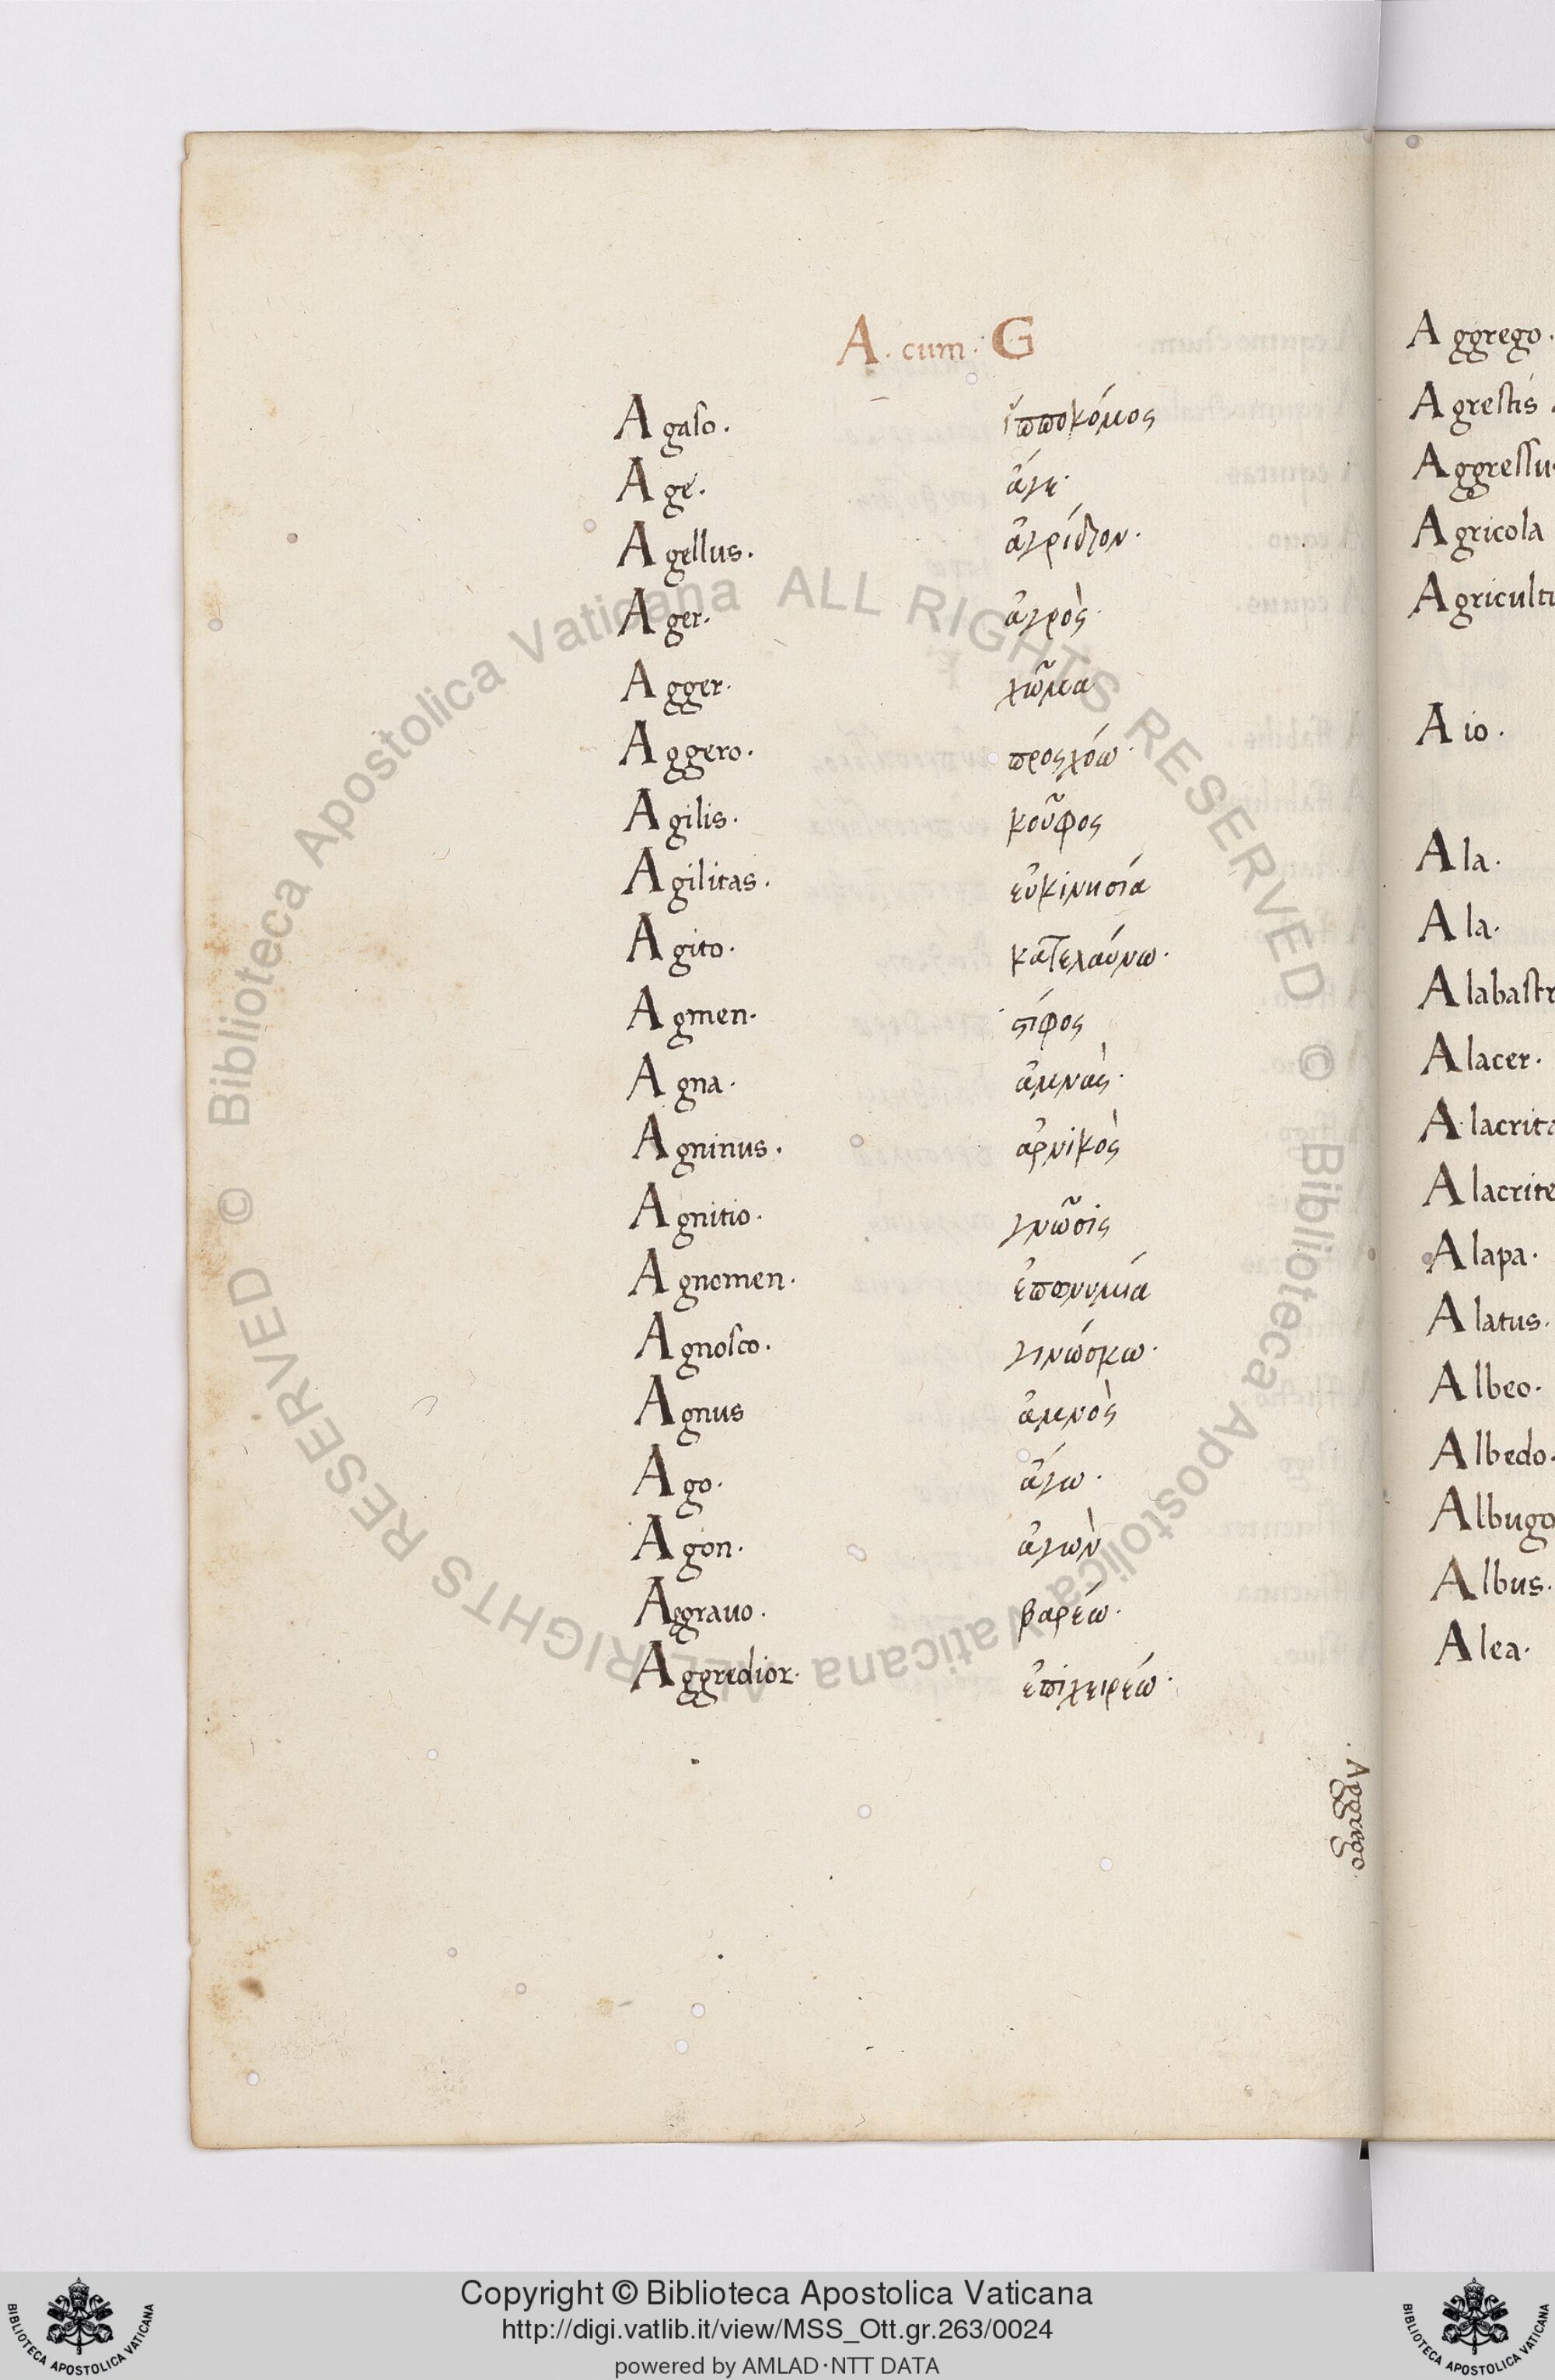 A. cum. G
Agaso. ἱπποκόμος
Age. ἄγε.
Agellus. ἀγρίδιον.
Ager. ἀγρὸς.
Agger. χῶμα
Aggero. προσχόω.
Agilis. κοῦφος
Agilitas. εὐκινησία
Agito. κατελαύνω.
Agmen. στίφος
Agna. ἀμνὰς.
Agninus. ἀρνικὸς
Agnitio. γνῶσις
Agnomen. ἐπωνυμία
Agnosco. γινώσκω.
Agnus ἀμνὸς
Ago. ἄγω.
Agon. ἀγὼν
Aggrauo. βαρέω.
Aggredior. ἐπιχειρέω.
. Aggrego.
Aggrego.
Agrestis.
Aggressu
Agricola
Agricultu
Aio.
Ala.
Ala.
Alabastr
Alacer.
Alacrita
Alacrite
Alapa.
Alatus.
Albeo.
Albedo.
Albugo
Albus.
Alea.
© Biblioteca Apostolica Vaticana ALL RIGHTS RESERVED © Biblioteca Apostolica Vaticana ALL RIGHTS RESERVED
Copyright © Biblioteca Apostolica Vaticana
http://digi.vatlib.it/view/MSS_Ott.gr.263/0024
powered by AMLAD·NTT DATA
BIBLIOTECA APOSTOLICA VATICANA
BIBLIOTECA APOSTOLICA VATICANA